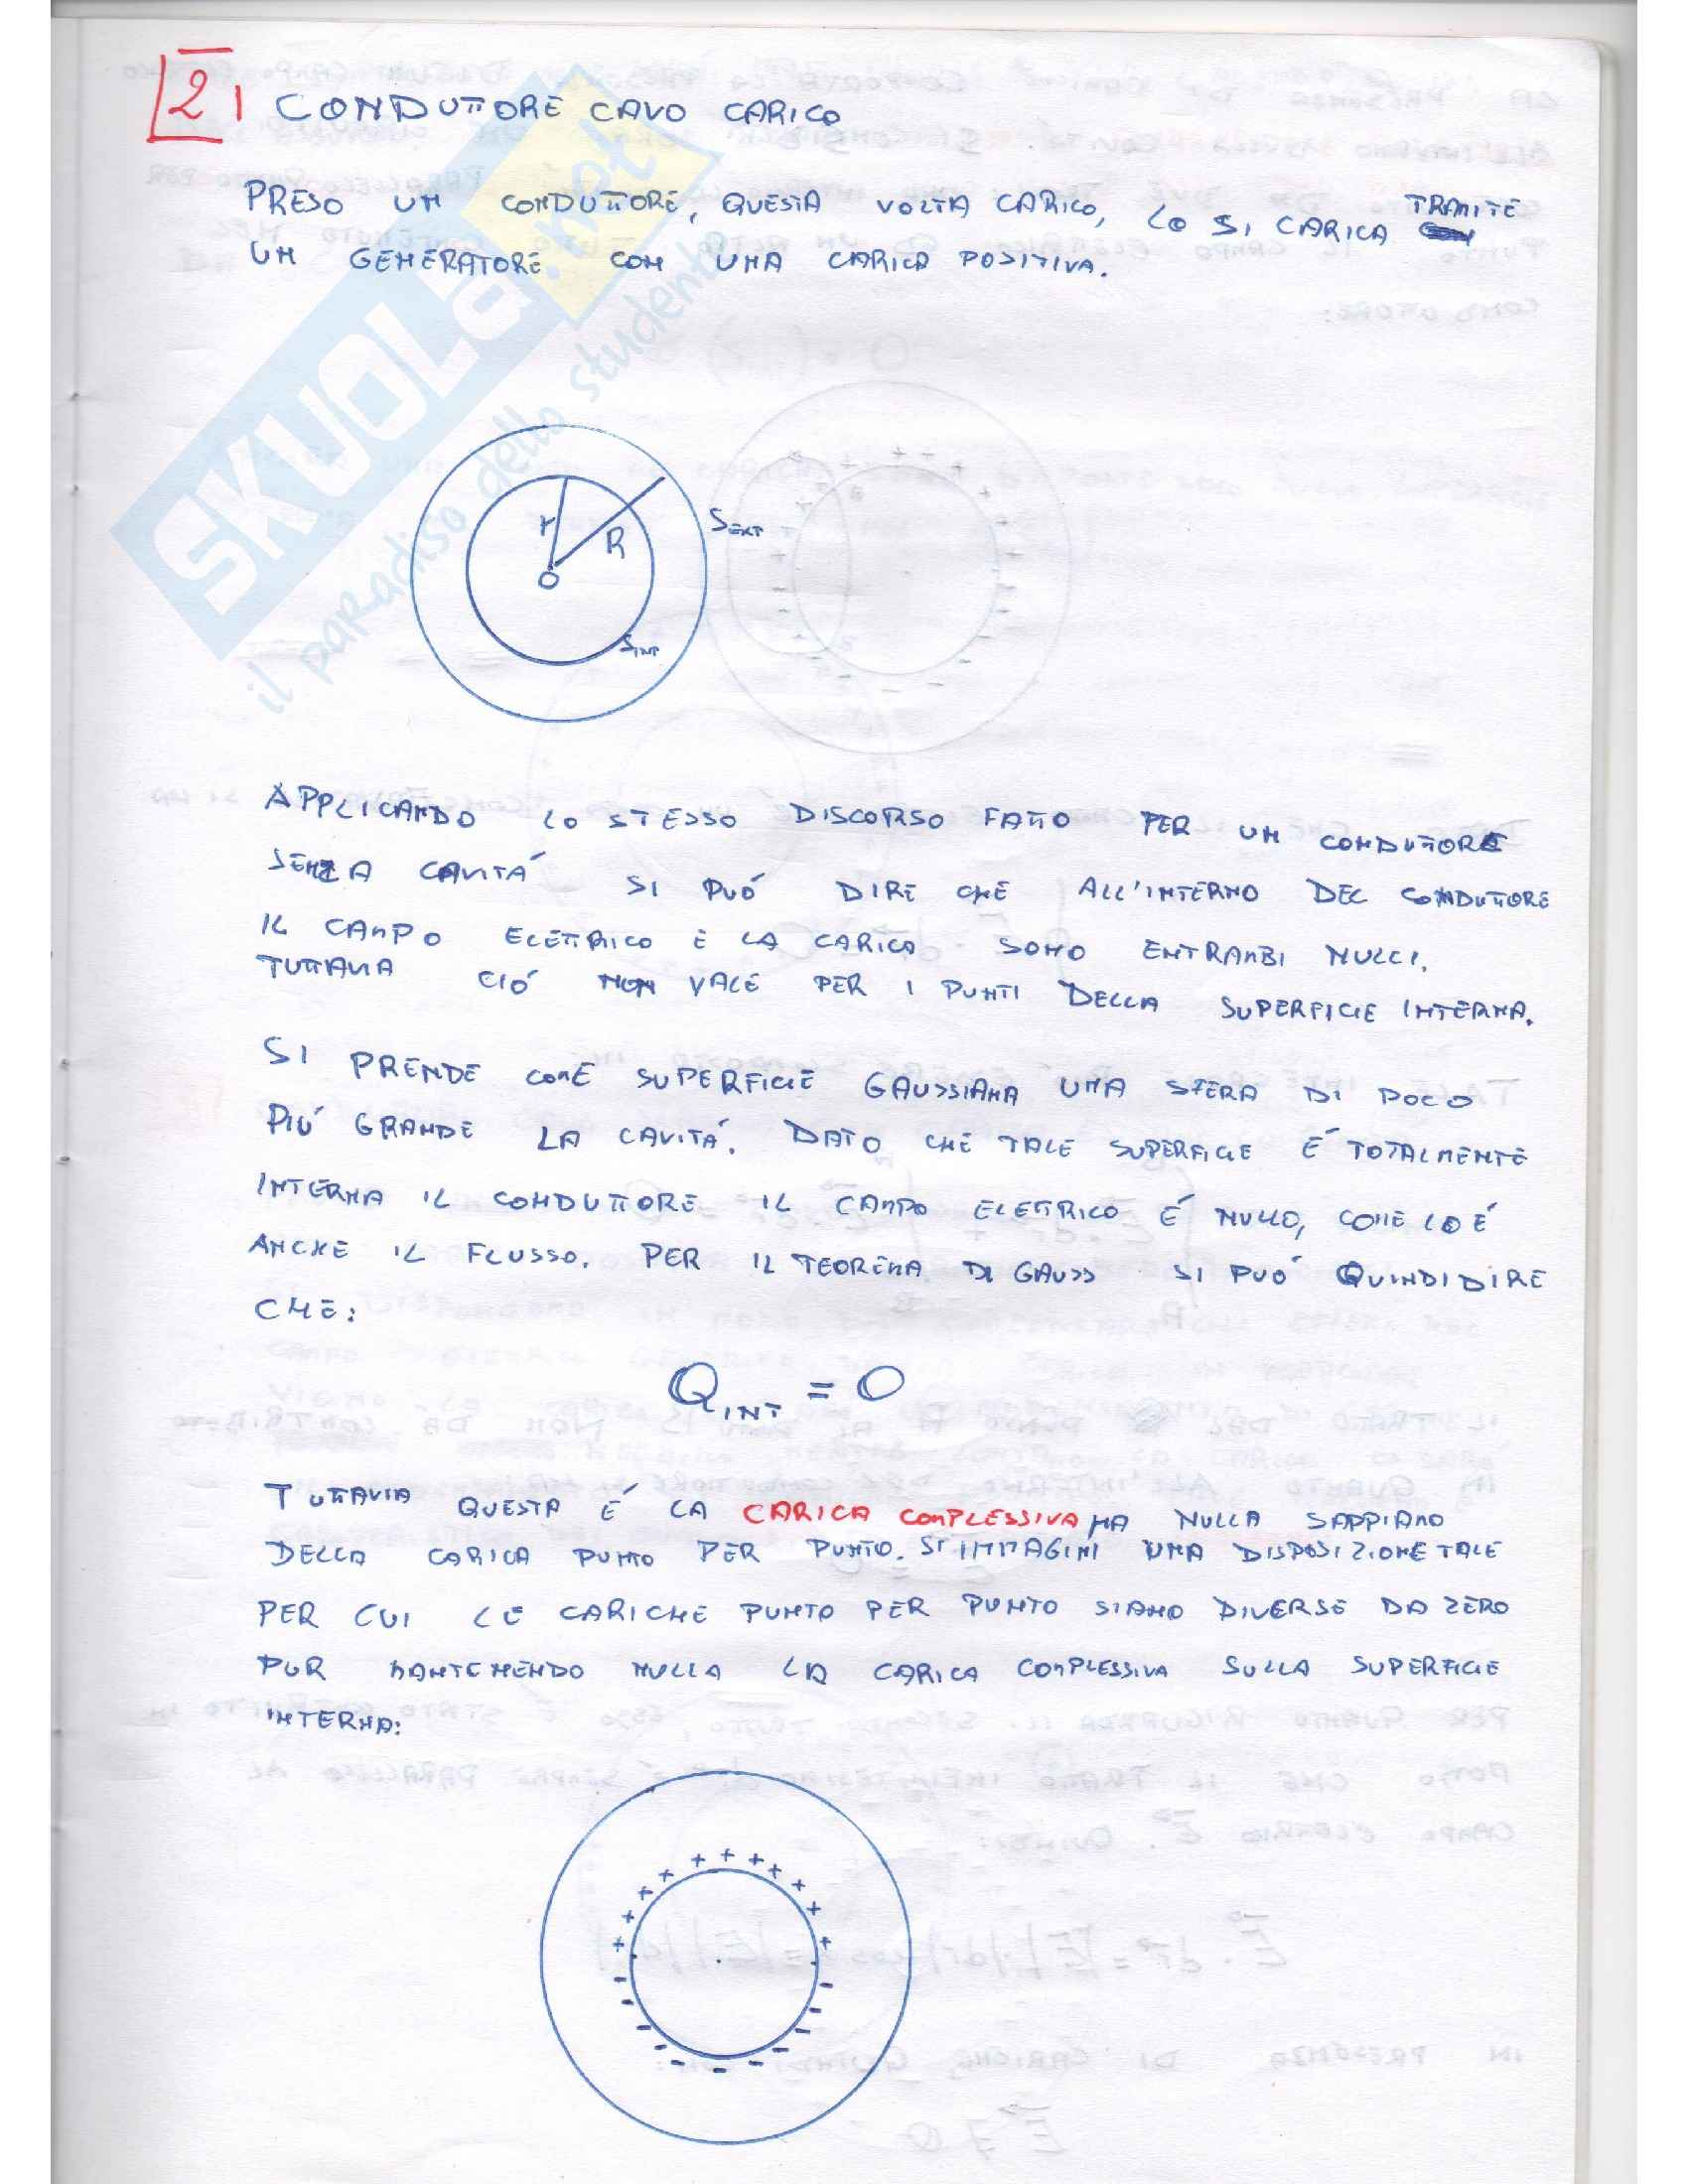 2) CONDUTTORE CAVO CARICO
PRESO UN CONDUTTORE, QUESTA VOLTA CARICO, LO SI CARICA TRAMITE
UN GENERATORE CON UNA CARICA POSITIVA.
SKUOLA.net
il paradiso dello studente
r
R
O
S EXT
S INT
APPLICANDO LO STESSO DISCORSO FATTO PER UN CONDUTTORE
SENZA CAVITÁ SI PUÓ DIRE CHE ALL'INTERNO DEL CONDUTTORE
IL CAMPO ELETTRICO E LA CARICA SONO ENTRAMBI NULLI.
TUTTAVIA CIÓ NON VALE PER I PUNTI DELLA SUPERFICIE INTERNA.
SI PRENDE COME SUPERFICIE GAUSSIANA UNA SFERA DI POCO
PIÚ GRANDE LA CAVITÁ. DATO CHE TALE SUPERFICIE É TOTALMENTE
INTERNA IL CONDUTTORE IL CAMPO ELETTRICO É NULLO, COME LO É
ANCHE IL FLUSSO. PER IL TEOREMA DI GAUSS SI PUÓ QUINDI DIRE
CHE:
Q INT = 0
TUTTAVIA QUESTA É LA CARICA COMPLESSIVA MA NULLA SAPPIAMO
DELLA CARICA PUNTO PER PUNTO. SI IMMAGINI UNA DISPOSIZIONE TALE
PER CUI LE CARICHE PUNTO PER PUNTO SIANO DIVERSE DA ZERO
PUR MANTENENDO NULLA LA CARICA COMPLESSIVA SULLA SUPERFICIE
INTERNA:
+ + + + + + + + + + + +
- - - - - - - - - - - -